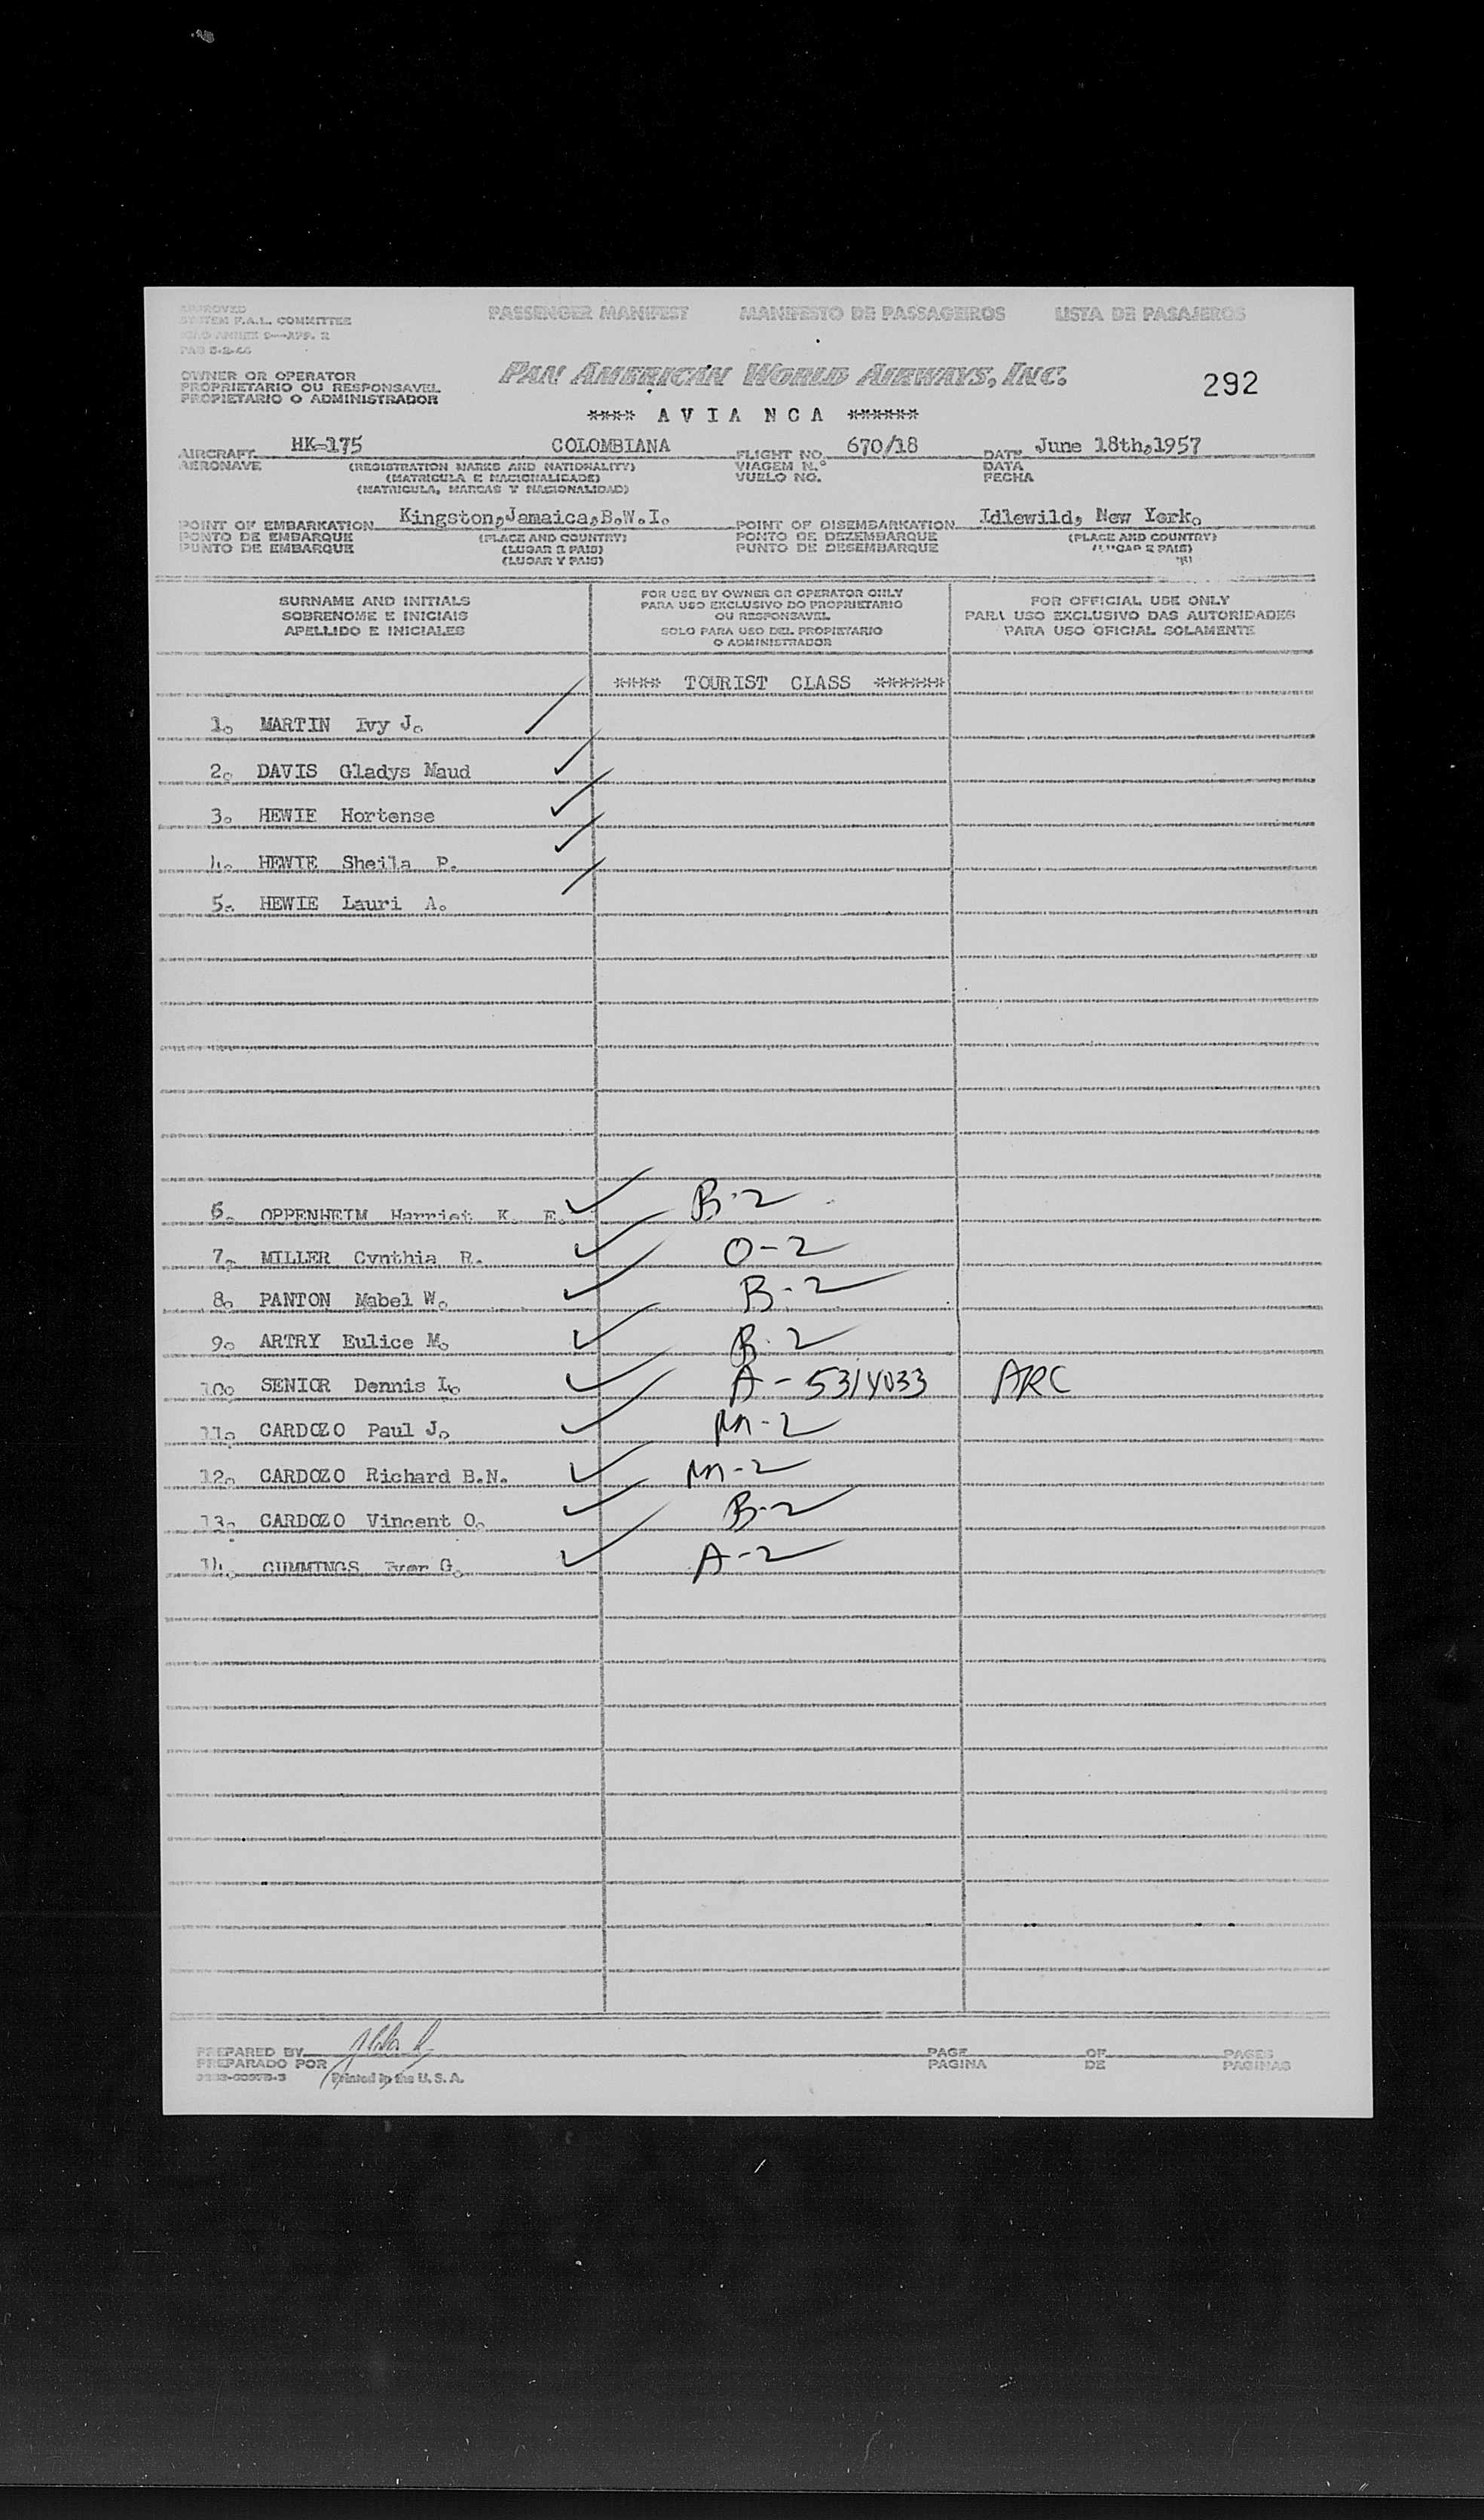 APPROVED
SYSTEM F.A.L. COMMITTEE
ICAO ANNEX 9—APP. 2
PASSENGER MANIFEST MANIFESTO DE PASSAGEIROS LISTA DE PASAJEROS
OWNER OR OPERATOR
PROPRIETARIO OU RESPONSAVEL
PROPIETARIO O ADMINISTRADOR
PAN AMERICAN WORLD AIRWAYS, INC.
292
**** A V I A N C A ******
AIRCRAFT HK-175 COLOMBIANA FLIGHT NO. 670/18 DATE June 18th,1957
AERONAVE (REGISTRATION MARKS AND NATIONALITY) VIAGEM N.° DATA
(MATRICULA E NACIONALIDADE) VUELO NO. FECHA
(MATRICULA, MARCAS Y NACIONALIDAD)
POINT OF EMBARKATION Kingston,Jamaica,B.W.I. POINT OF DISEMBARKATION Idlewild, New York.
PONTO DE EMBARQUE (PLACE AND COUNTRY) PONTO DE DEZEMBARQUE (PLACE AND COUNTRY)
PUNTO DE EMBARQUE (LUGAR E PAIS) PUNTO DE DESEMBARQUE (LUGAR E PAIS)
(LUGAR Y PAIS)
SURNAME AND INITIALS
SOBRENOME E INICIAIS
APELLIDO E INICIALES
FOR USE BY OWNER OR OPERATOR ONLY
PARA USO EXCLUSIVO DO PROPRIETARIO
OU RESPONSAVEL
SOLO PARA USO DEL PROPIETARIO
O ADMINISTRADOR
FOR OFFICIAL USE ONLY
PARA USO EXCLUSIVO DAS AUTORIDADES
PARA USO OFICIAL SOLAMENTE
**** TOURIST CLASS ******
1. MARTIN Ivy J.
2. DAVIS Gladys Maud
3. HEWIE Hortense
4. HEWIE Sheila P.
5. HEWIE Lauri A.
6. OPPENHEIM Harriet K. E. B-2
7. MILLER Cynthia R. O-2
8. PANTON Mabel W. B-2
9. ARTRY Eulice M. B-2
10. SENIOR Dennis L. A-5314033 ARC
11. CARDOZO Paul J. M-2
12. CARDOZO Richard B.N. M-2
13. CARDOZO Vincent O. B-2
14. CUMMINGS Iver G. A-2
PREPARED BY PAGE OF PAGES
PREPARADO POR PAGINA DE PAGINAS
Printed in the U. S. A.